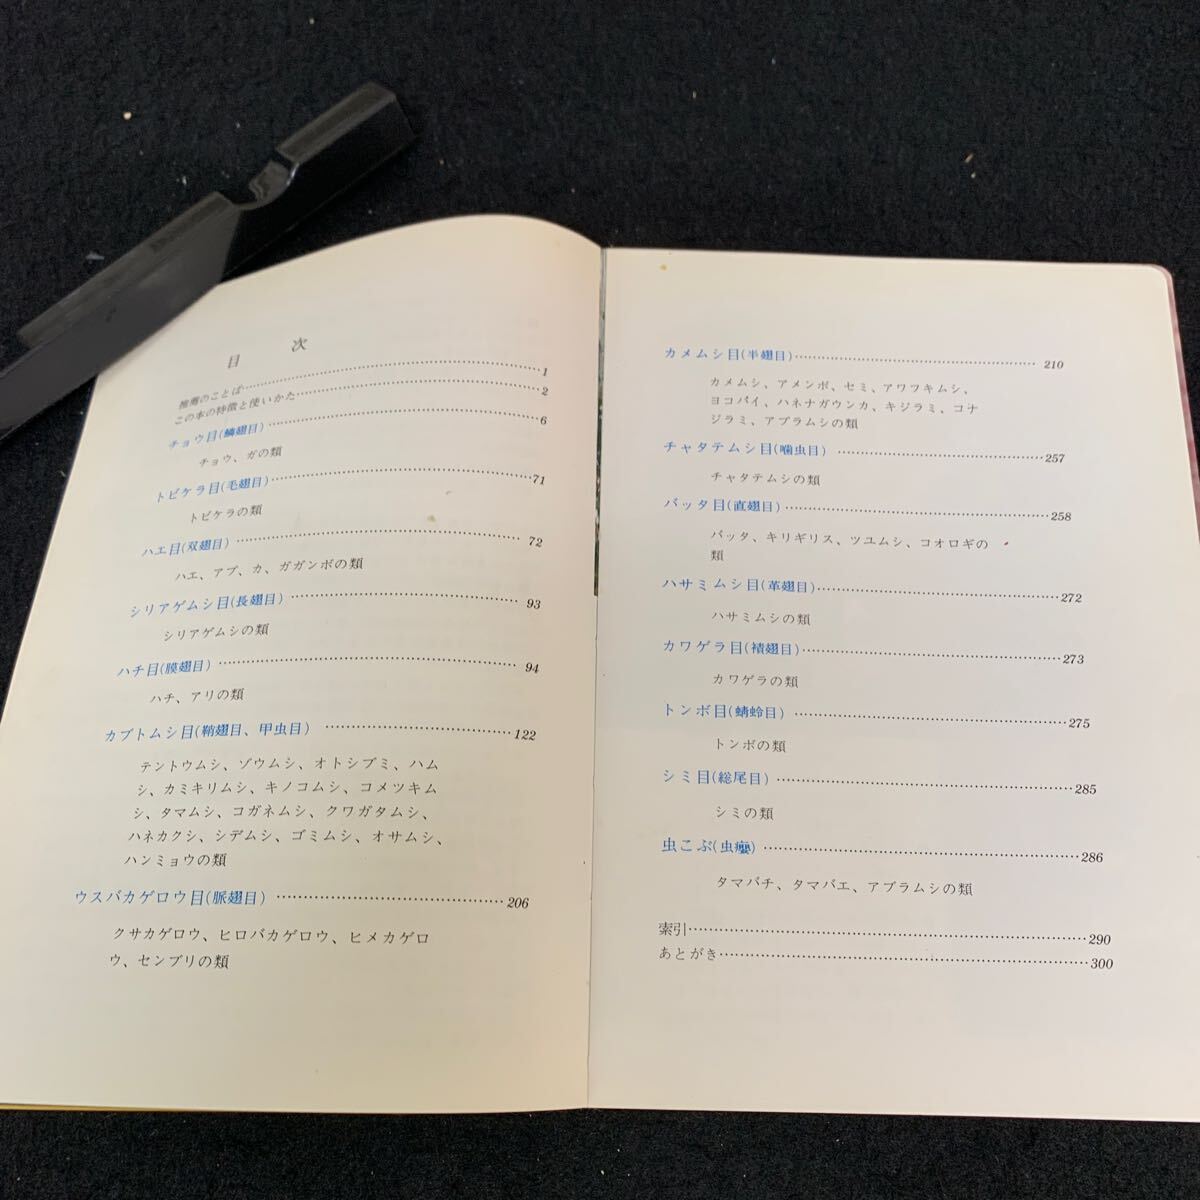 目次
推薦のことば……1
この本の特徴と使いかた……2
チョウ目(鱗翅目)……6
チョウ、ガの類
トビケラ目(毛翅目)……71
トビケラの類
ハエ目(双翅目)……72
ハエ、アブ、カ、ガガンボの類
シリアゲムシ目(長翅目)……93
シリアゲムシの類
ハチ目(膜翅目)……94
ハチ、アリの類
カブトムシ目(鞘翅目、甲虫目)……122
テントウムシ、ゾウムシ、オトシブミ、ハム
シ、カミキリムシ、キノコムシ、コメツキム
シ、タマムシ、コガネムシ、クワガタムシ、
ハネカクシ、シデムシ、ゴミムシ、オサムシ、
ハンミョウの類
ウスバカゲロウ目(脈翅目)……206
クサカゲロウ、ヒロバカゲロウ、ヒメカゲロ
ウ、センブリの類
カメムシ目(半翅目)……210
カメムシ、アメンボ、セミ、アワフキムシ、
ヨコバイ、ハネナガウンカ、キジラミ、コナ
ジラミ、アブラムシの類
チャタテムシ目(噛虫目)……257
チャタテムシの類
バッタ目(直翅目)……258
バッタ、キリギリス、ツユムシ、コオロギの
類
ハサミムシ目(革翅目)……272
ハサミムシの類
カワゲラ目(襀翅目)……273
カワゲラの類
トンボ目(蜻蛉目)……275
トンボの類
シミ目(総尾目)……285
シミの類
虫こぶ(虫癭)……286
タマバチ、タマバエ、アブラムシの類
索引……290
あとがき……300